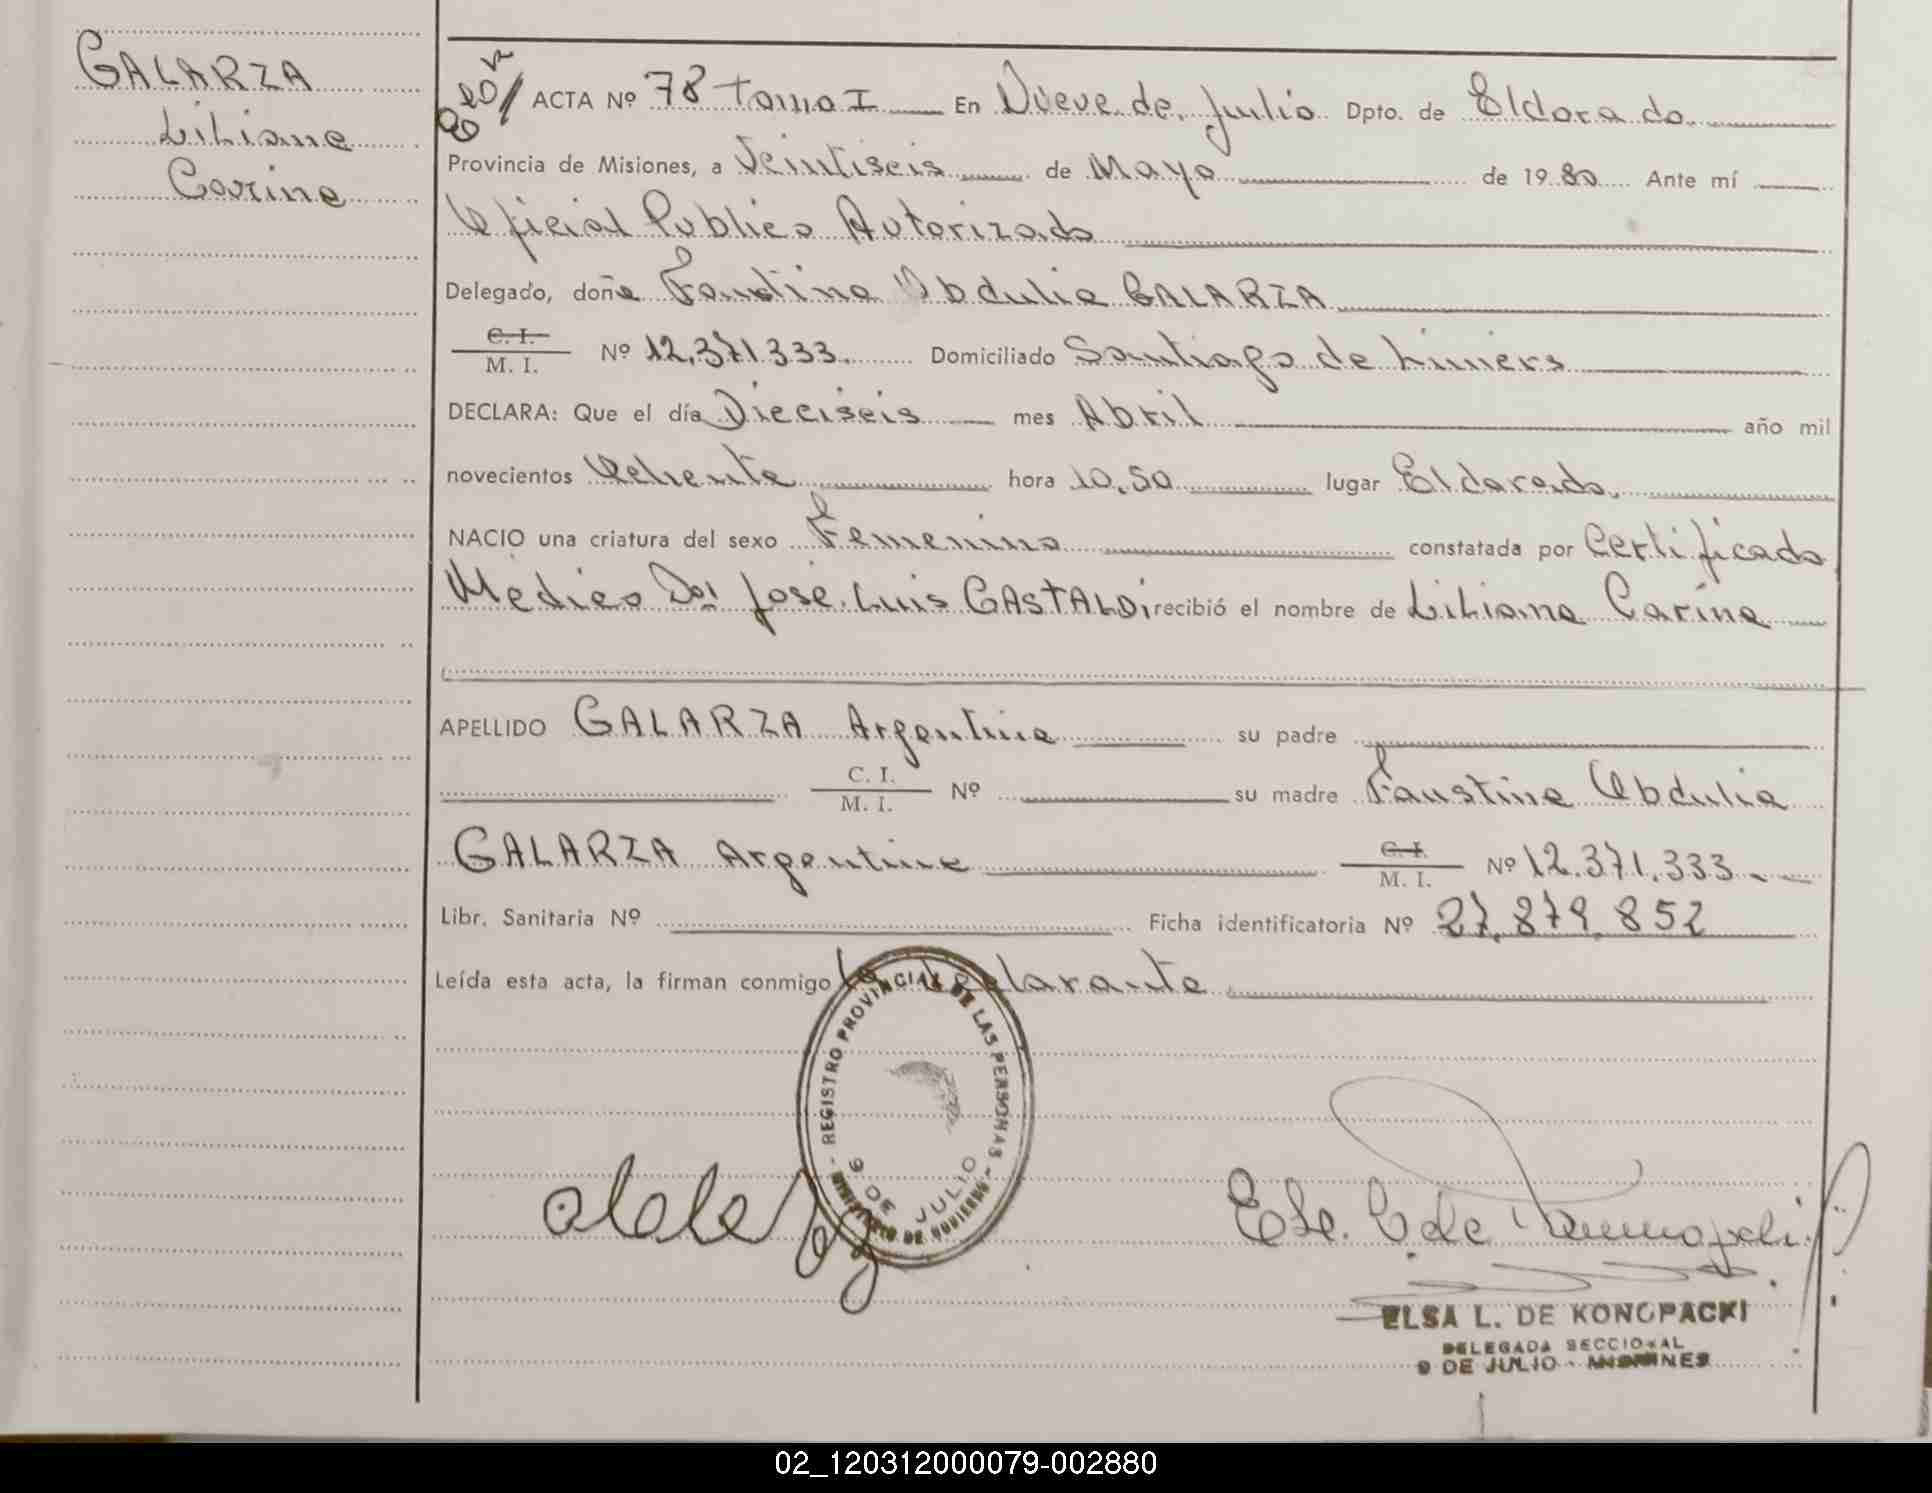 GALARZA
Liliana
Carina
ACTA Nº 78 tomo I En Nueve de Julio Dpto. de Eldorado
Provincia de Misiones, a Veintiseis de Mayo de 1980 Ante mí
Oficial Publico Autorizado
Delegado, doña Faustina Obdulia GALARZA
C. I.
M. I. Nº 12.371.333. Domiciliado Santiago de Liniers
DECLARA: Que el día Dieciseis mes Abril año mil
novecientos Ochenta hora 10,50 lugar Eldorado.
NACIO una criatura del sexo Femenino constatada por Certificado
Médico Dr José Luis GASTALDI recibió el nombre de Liliana Carina
APELLIDO GALARZA Argentina su padre
C. I.
M. I. Nº su madre Faustina Obdulia
GALARZA Argentina C. I.
M. I. Nº 12.371.333
Libr. Sanitaria Nº Ficha identificatoria Nº 27.879.852
Leída esta acta, la firman conmigo la declarante
- REGISTRO PROVINCIAL DE LAS PERSONAS -
MINISTERIO DE GOBIERNO
9 DE JULIO
ELSA L. DE KONOPACKI
DELEGADA SECCIONAL
9 DE JULIO - MISIONES
02_120312000079-002880